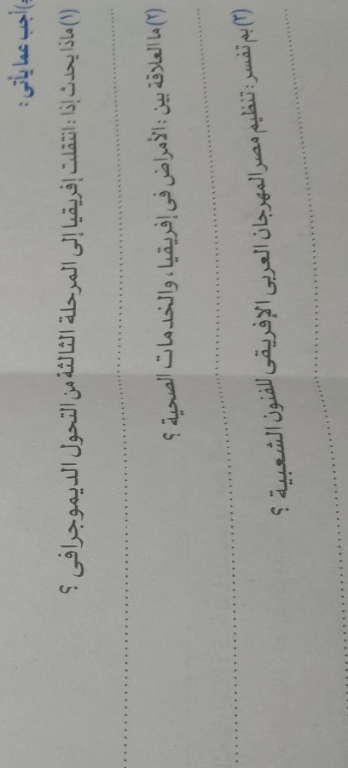 أجب عما يأتى :
(١) ماذا يحدث إذا : انتقلت إفريقيا إلى المرحلة الثالثة من التحول الديموجرافى ؟
(٢) ما العلاقة بين : الأمراض فى إفريقيا ، والخدمات الصحية ؟
(٣) بم تفسر : تنظيم مصر المهرجان العربى الإفريقى للفنون الشعبية ؟